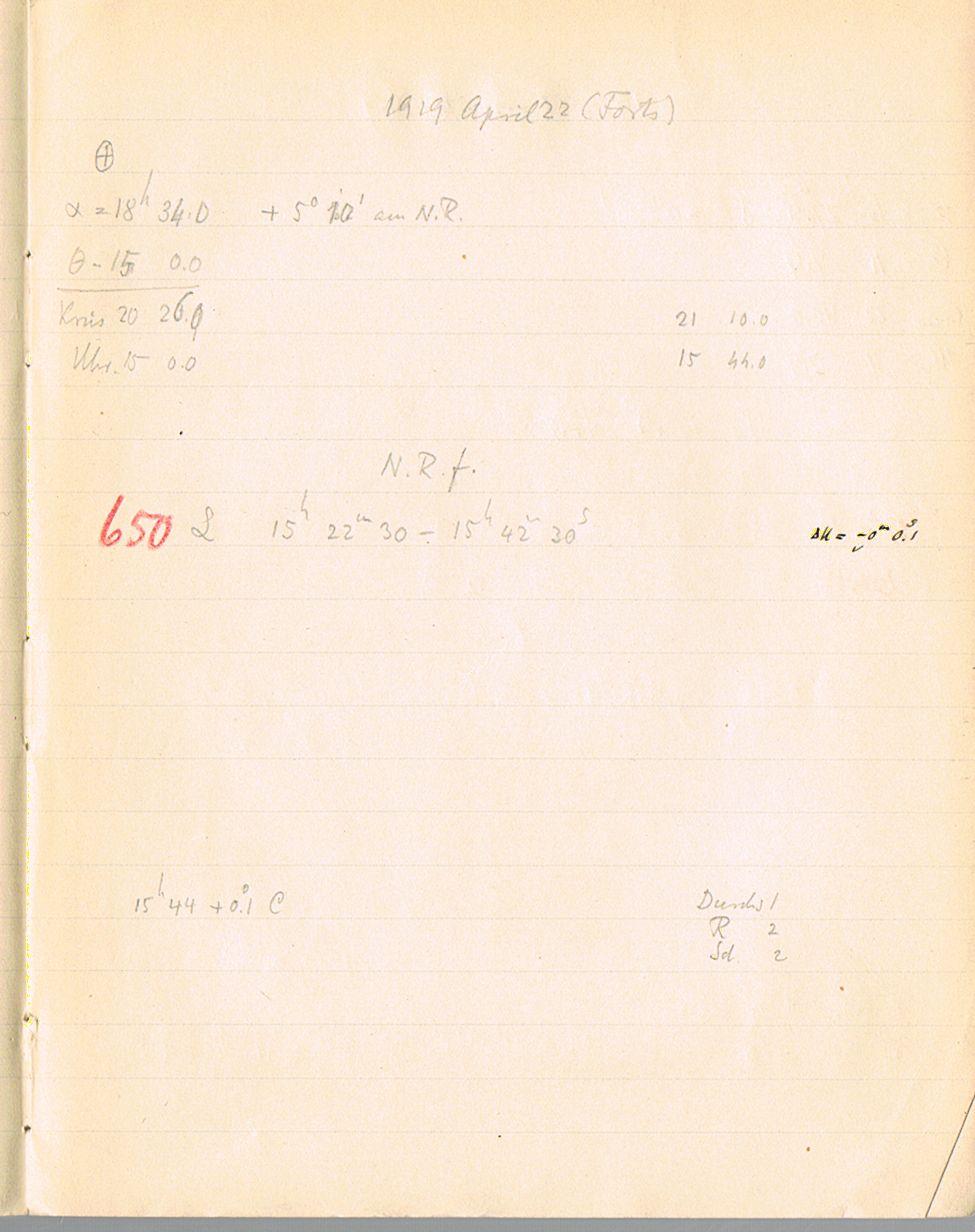 1919 April 22 (Forts)
⊕
α = 18ʰ 34.0 + 5° 10' am N.R.
θ - 15 0.0
Kreis 20 26.0 21 10.0
Uhr. 15 0.0 15 44.0
N.R.f.
650 L 15ʰ 22ᵐ 30 – 15ʰ 42ᵐ 30ˢ ΔU = -0ᵐ 0.1ˢ
15ʰ 44 + 0.1° C Durchs 1
R 2
Sd. 2